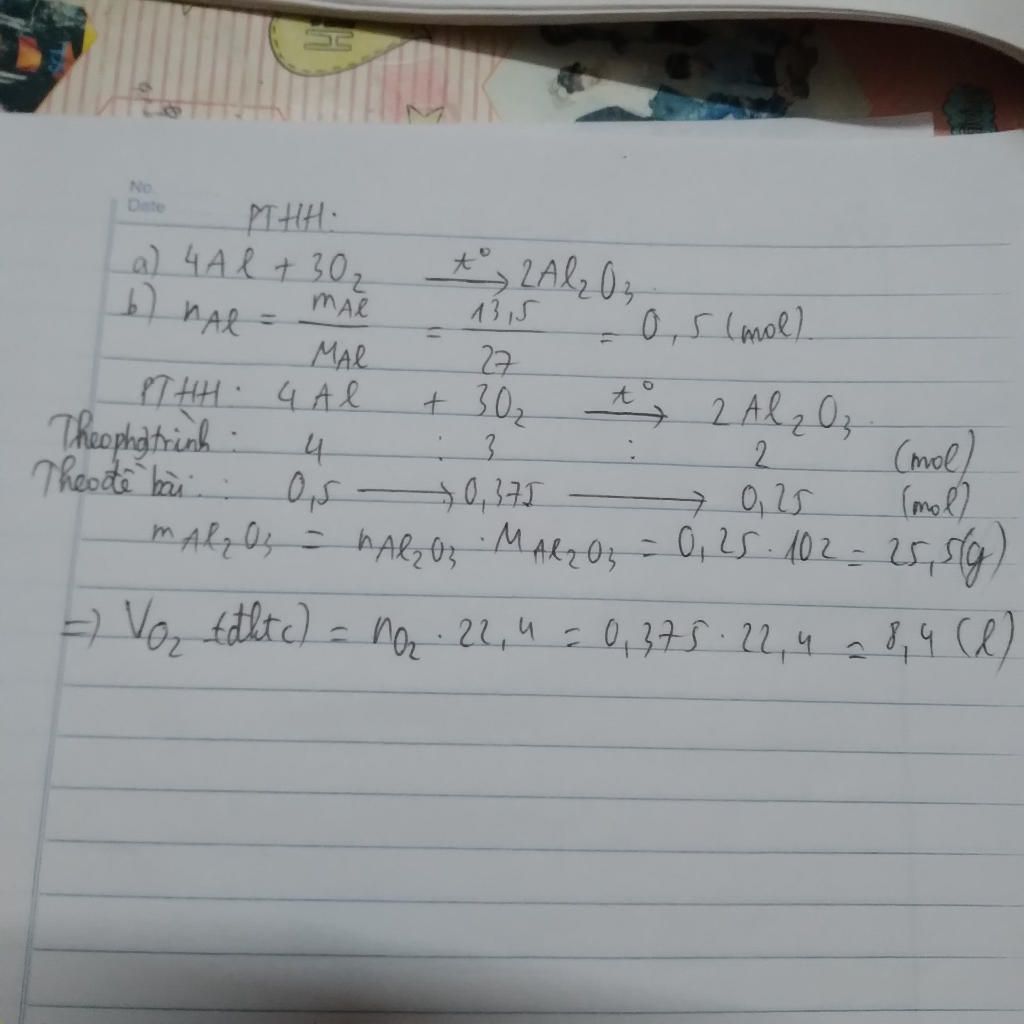 No.
Date
PTHH:
a) 4Al + 3O₂ —t°→ 2Al₂O₃
b) nAl = mAl / MAl = 13,5 / 27 = 0,5 (mol).
PTHH: 4Al + 3O₂ —t°→ 2Al₂O₃
Theo phg trình: 4 : 3 : 2 (mol)
Theo đề bài: 0,5 → 0,375 → 0,25 (mol)
mAl₂O₃ = nAl₂O₃ . MAl₂O₃ = 0,25 . 102 = 25,5(g)
=) VO₂ (đktc) = nO₂ . 22,4 = 0,375 . 22,4 = 8,4 (l)